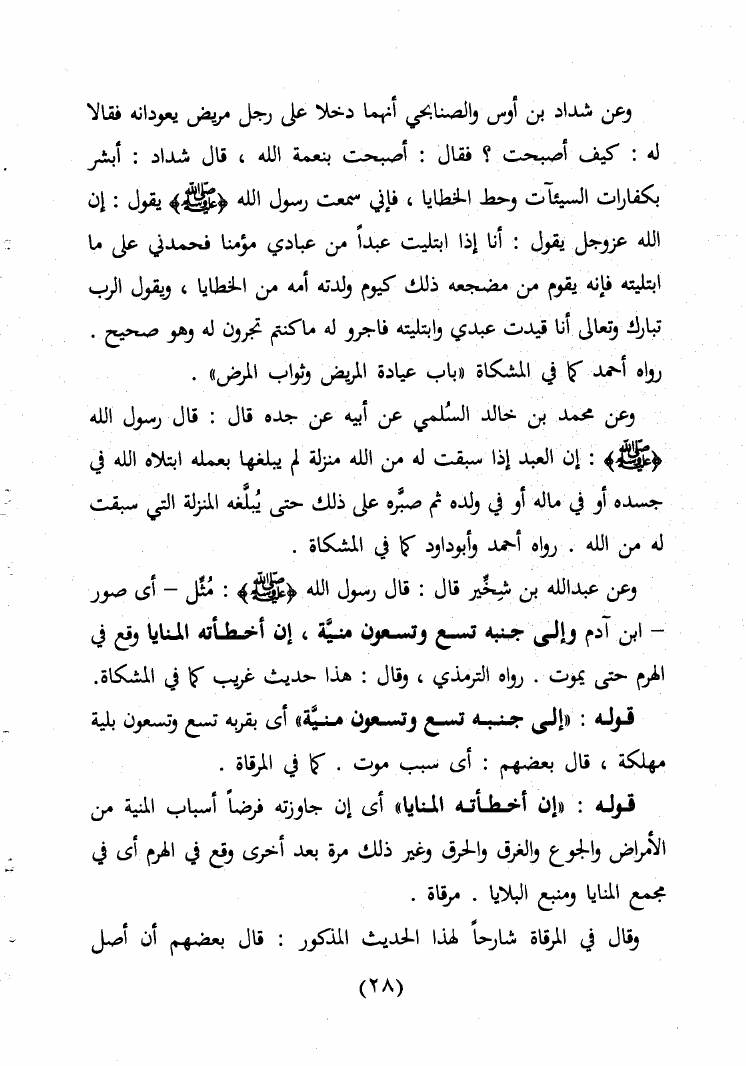 وعن شداد بن أوس والصنابحي أنهما دخلا على رجل مريض يعودانه فقالا
له : كيف أصبحت ؟ فقال : أصبحت بنعمة الله ، قال شداد : أبشر
بكفارات السيئآت وحط الخطايا ، فإني سمعت رسول الله ﴿ﷺ﴾ يقول : إن
الله عزوجل يقول : أنا إذا ابتليت عبداً من عبادي مؤمنا فحمدني على ما
ابتليته فإنه يقوم من مضجعه ذلك كيوم ولدته أمه من الخطايا ، ويقول الرب
تبارك وتعالى أنا قيدت عبدي وابتليته فاجرو له ماكنتم تجرون له وهو صحيح .
رواه أحمد كما في المشكاة «باب عيادة المريض وثواب المرض» .
وعن محمد بن خالد السُلمي عن أبيه عن جده قال : قال رسول الله
﴿ﷺ﴾ : إن العبد إذا سبقت له من الله منزلة لم يبلغها بعمله ابتلاه الله في
جسده أو في ماله أو في ولده ثم صبَّره على ذلك حتى يُبلَّغه المنزلة التي سبقت
له من الله . رواه أحمد وأبوداود كما في المشكاة .
وعن عبدالله بن شِخِّير قال : قال رسول الله ﴿ﷺ﴾ : مُثِّل – أى صور
– ابن آدم وإلى جنبه تسع وتسعون منيَّة ، إن أخطأته المنايا وقع في
الهرم حتى يموت . رواه الترمذي ، وقال : هذا حديث غريب كما في المشكاة.
قوله : «إلى جنبه تسع وتسعون منيَّة» أى بقربه تسع وتسعون بلية
مهلكة ، قال بعضهم : أى سبب موت . كما في المرقاة .
قوله : «إن أخطأته المنايا» أى إن جاوزته فرضاً أسباب المنية من
الأمراض والجوع والغرق والحرق وغير ذلك مرة بعد أخرى وقع في الهرم أى في
مجمع المنايا ومنبع البلايا . مرقاة .
وقال في المرقاة شارحاً لهذا الحديث المذكور : قال بعضهم أن أصل
(٢٨)